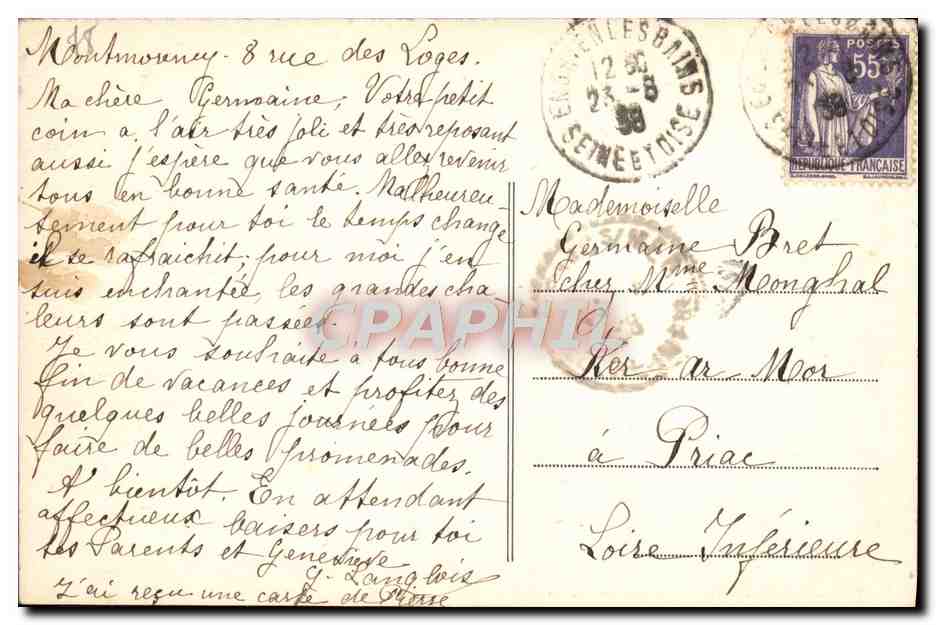 18
Montmorency - 8 rue des Loges.
Ma chère Germaine, Votre petit
coin a l'air très joli et très reposant
aussi j'espère que vous allez revenir
tous en bonne santé. Malheureu-
sement pour toi le temps change
il se rafraichit, pour moi j'en
suis enchantée, les grandes cha-
leurs sont passées.
Je vous souhaite à tous bonne
fin de vacances et profitez des
quelques belles journées pour
faire de belles promenades.
A bientôt. En attendant
affectueux baisers pour toi
tes Parents et Geneviève
G. Langlois
J'ai reçu une carte de Pierre
ENGHIEN LES BAINS
12
23 - 8
38
SEINE ET OISE
POSTES
55c
REPUBLIQUE FRANCAISE
Mademoiselle
Germaine Bret
cher Mme Monghal
Ker ar Mor
à Priac
Loire Inférieure
CPAPHIL